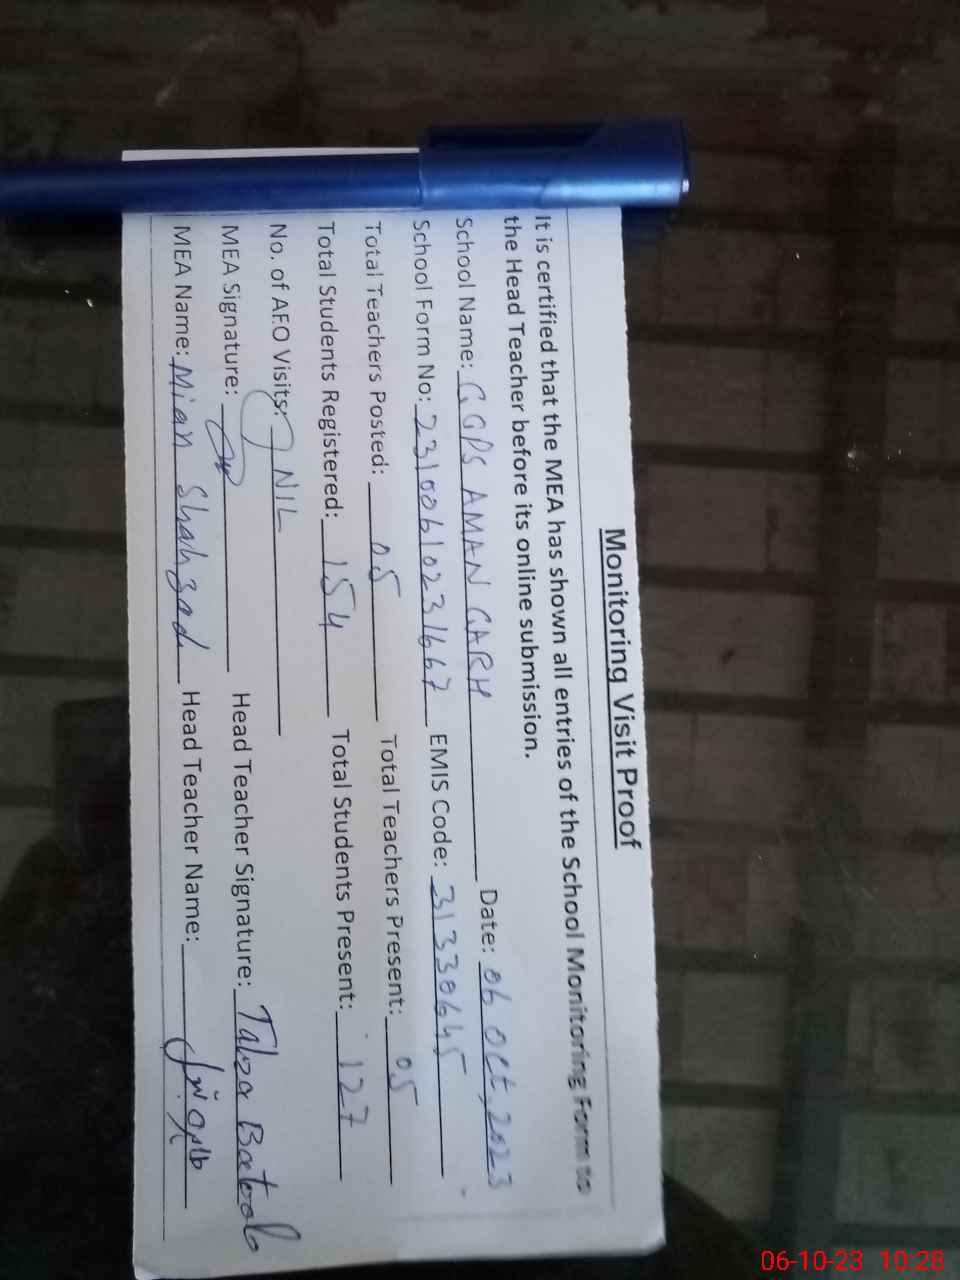 Monitoring Visit Proof
It is certified that the MEA has shown all entries of the School Monitoring Form to
the Head Teacher before its online submission.
School Name: GGPS AMAN GARH Date: 06 Oct, 2023
School Form No: 231006102311667 EMIS Code: 31330645
Total Teachers Posted: 05 Total Teachers Present: 05
Total Students Registered: 154 Total Students Present: 127
No. of AEO Visits: NIL
MEA Signature: Head Teacher Signature: Taloza Batool
MEA Name: Mian Shahzad Head Teacher Name:
06-10-23 10:28